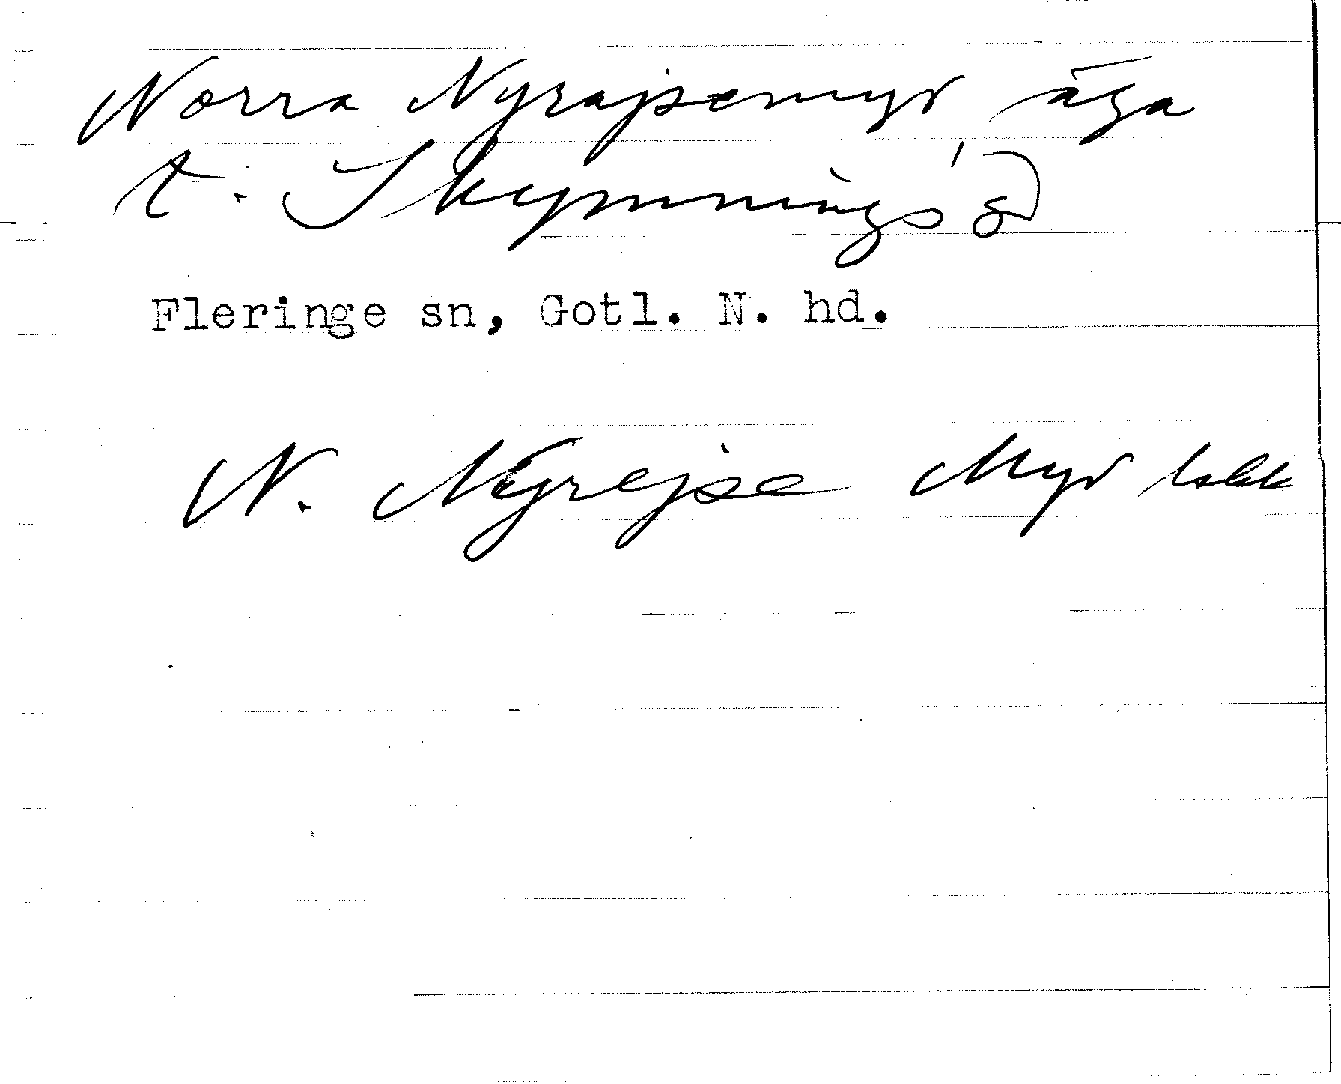 Norra Nyrajsemyr äga
t. Skymnings 8
Fleringe sn, Gotl. N. hd.
N. Nyrejse Myr